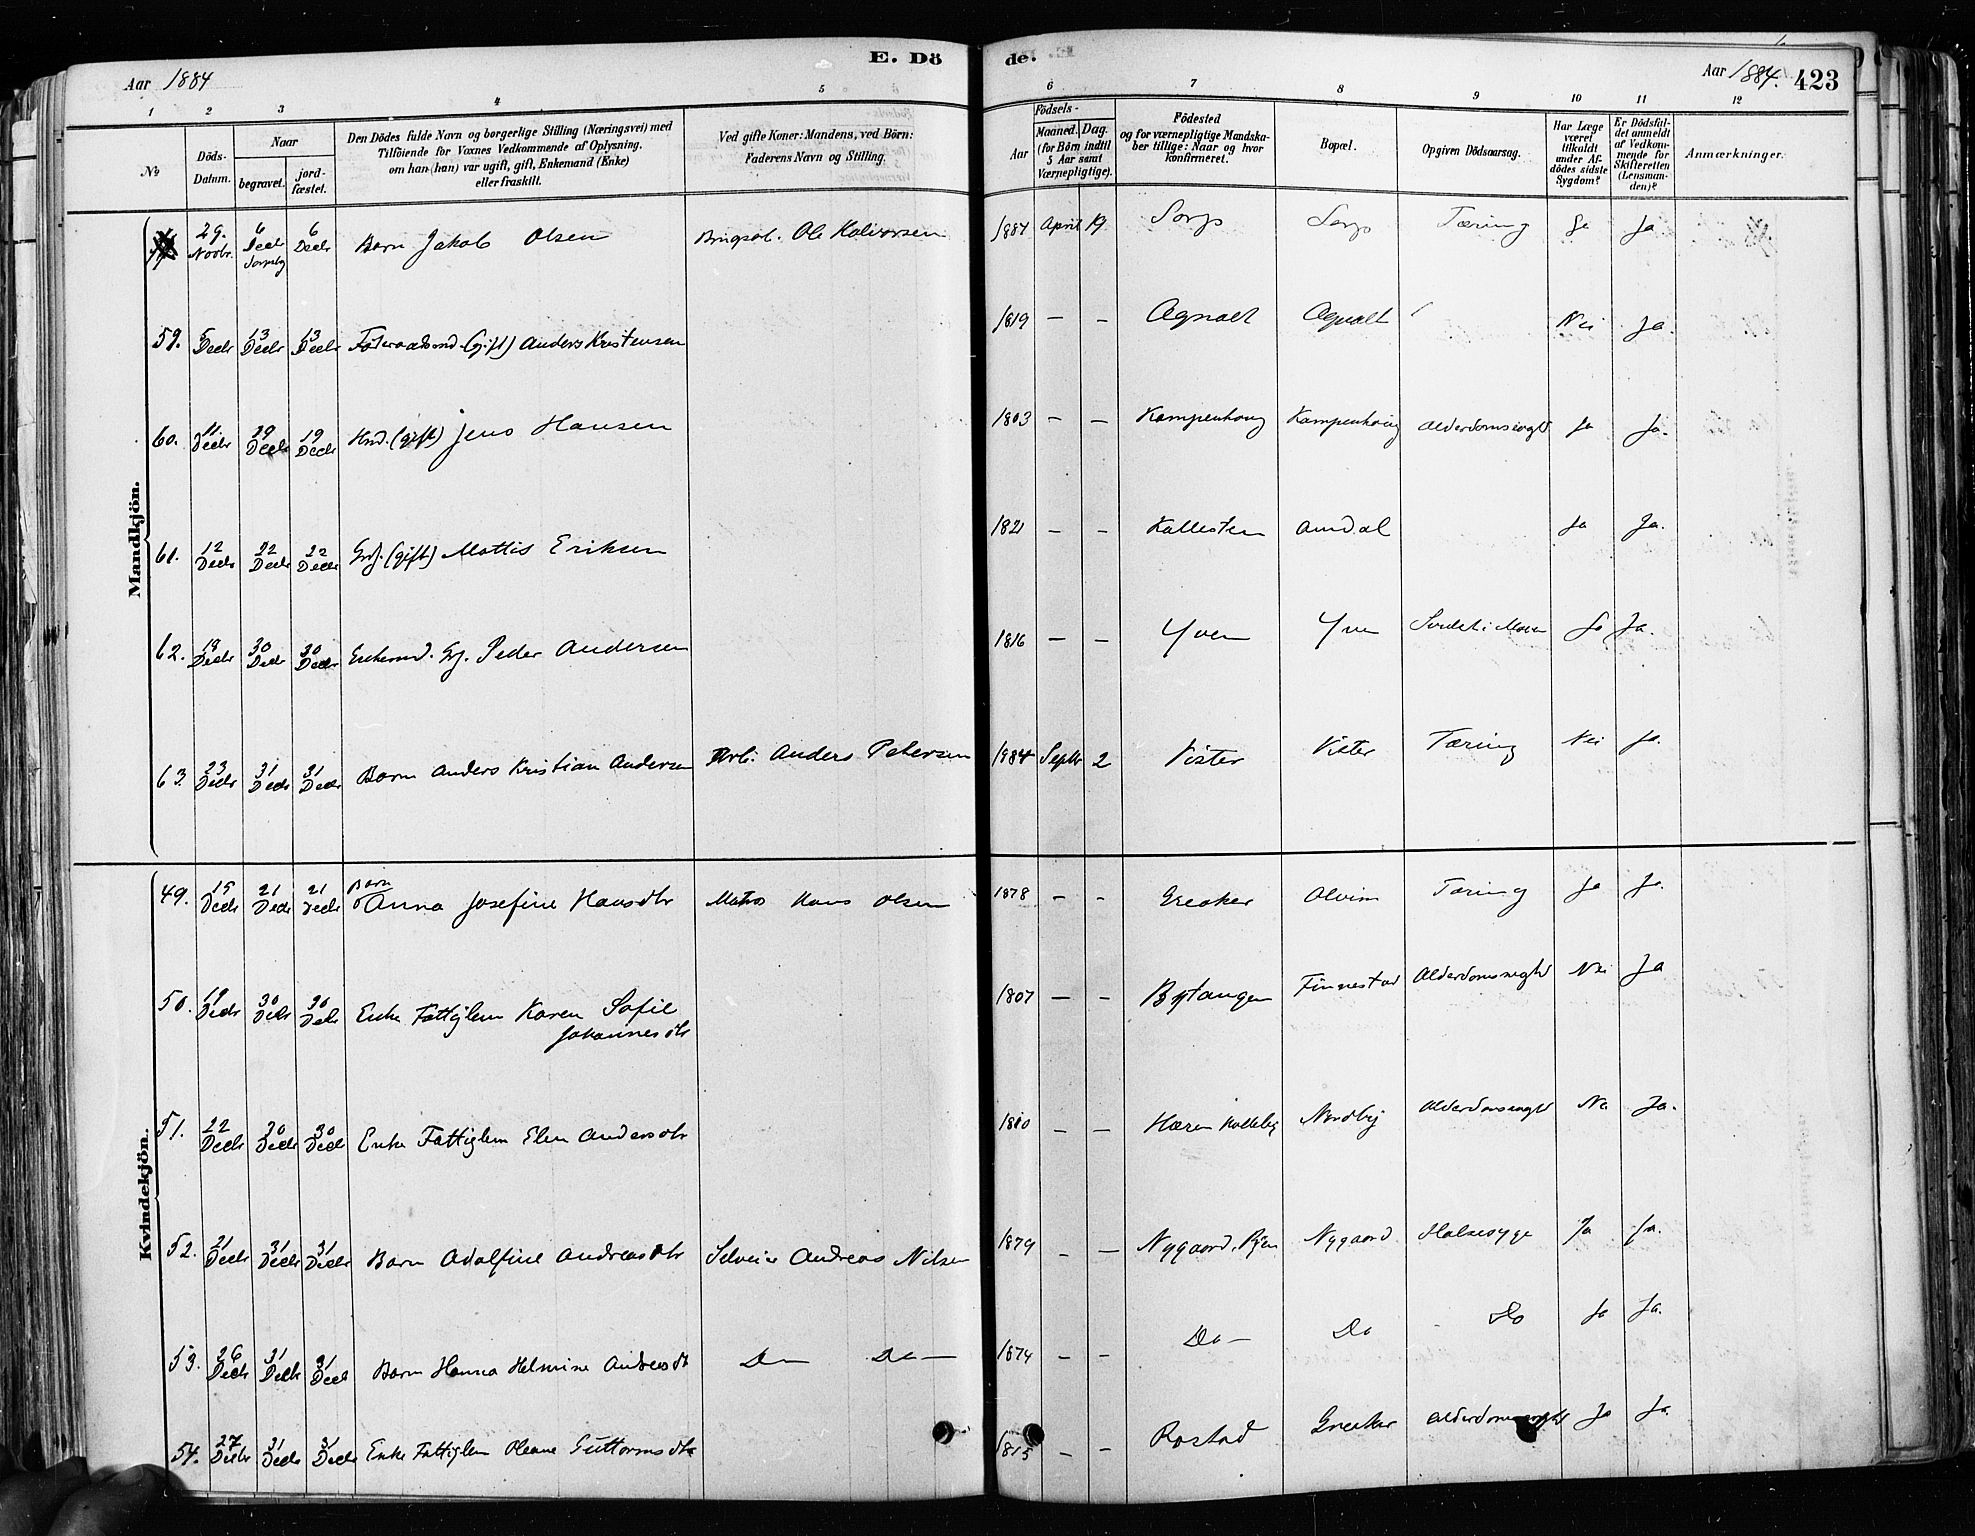 E. Dö de.
Aar 1884
Aar 1884. 423
1 2 3 4 5 6 7 8 9 10 11 12
No
Döds-Datum.
Naar
begravet.
jord-fæstet.
Den Dödes fulde Navn og borgerlige Stilling (Næringsvei) med
Tilföiende for Voxnes Vedkommende af Oplysning,
om han (hun) var ugift, gift, Enkemand (Enke)
eller fraskilt.
Ved gifte Koner: Mandens, ved Börn:
Faderens Navn og Stilling.
Födsels-
Aar
Maaned. Dag.
(for Börn indtil
5 Aar samt
Værnepligtige).
Födested
og for værnepligtige Mandska-
ber tillige: Naar og hvor
konfirmeret.
Bopæl.
Opgiven Dödsaarsag.
Har Læge
været
tilkaldt
under Af-
dödes sidste
Sygdom?
Er Dödsfal-
det anmeldt
af Vedkom-
mende for
Skifteretten
(Lensman-
den)?
Anmærkninger.
Mandkjön.
29. Novbr. 6 Decbr 6 Decbr Barn Jakob Olsen Ole Halvorsen 1884 April 19 Sorgs Sorgs Tæring Ja Ja
59. 5 Decbr 13 Decbr 13 Decbr Föderaadsmd. (gift) Anders Kristensen 1819 — — Agnalt Agnalt Nei Ja.
60. 11. Decbr 19 Decbr 19 Decbr Hmd. (gift) Jens Hansen 1803 — — Kampenhoug Kampenhoug Alderdomssvaghd Ja Ja.
61. 12 Decbr 22 Decbr 22 Decbr Grf. (gift) Mattis Eriksen 1821 — — Kallesten Aundal Ja Ja.
62. 19 Decbr 30 Decbr 30 Decbr Enkemd. Grf. Peder Andersen 1816 — — Yven Yven Ja Ja.
63. 23 Decbr 31 Decbr 31 Decbr Barn Anders Kristian Andersen Arb. Anders Petersen 1884 Septbr 2 Vister Vister Tæring Nei Ja.
Kvindekjön.
49. 15 Decbr 21 Decbr 21 Decbr Barn Anna Josefine Hansdtr Matros Hans Olsen 1878 — — Greaker Alvim Tæring Ja Ja.
50. 19 Decbr 30 Decbr 30 Decbr Enke Fattiglem Karen Sofie
Johannesdtr 1807 — — Bytangen Finnestad Alderdomssvaghd Nei Ja
51. 22 Decbr 30 Decbr 30 Decbr Enke Fattiglem Elen Andersdtr 1810 — — Nordby Alderdomssvaghd Nei Ja.
52. 21 Decbr 31 Decbr 31 Decbr Barn Adolfine Andreasdtr Selveier Andreas Nilsen 1879 — — Nygaard Nygaard Halsesyge Ja Ja.
53. 26 Decbr 31 Decbr 31 Decbr Barn Hanna Helmine Andreasdtr Do Do — 1874 — — Do — Do Do Ja Ja.
54. 27 Decbr 31 Decbr 31 Decbr Enke Fattiglem Oleane Guttormsdtr 1815 — — Rostad Greaker Alderdomssvaghd Ja Ja.